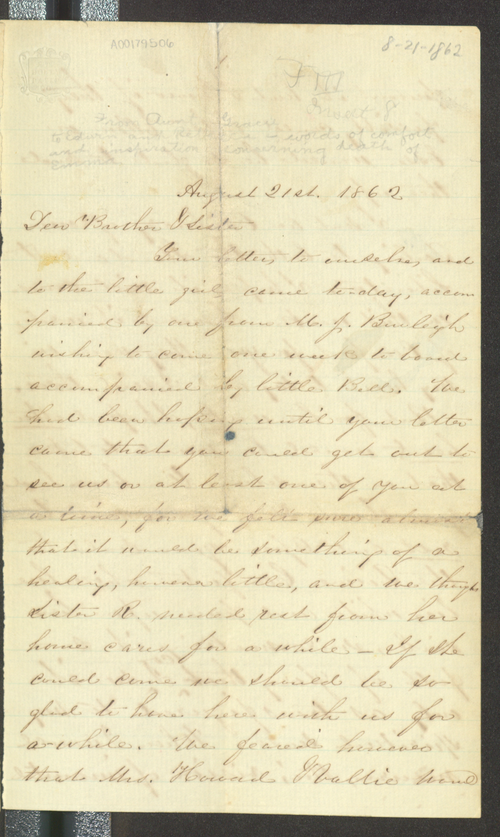 A00179506
8-21-1862
F III
From Aunt Grace
and words of comfort
and inspiration concerning death of
August 21st. 1862
Dear Brother & Sister
Your letters to ourselves, and
to the little girls came to-day, accom
panied by one from M. J. Burleigh
wishing to come one week to board
accompanied by little Bell. We
had been hoping until your letter
came that you could get out to
see us or at least one of you at
a time, for we felt sure almost
that it would be something of a
healing, however little, and we thought
Sister R. needed rest from her
home cares for a while - If she
could come we should be so
glad to have her with us for
a while. We feared however
that Mrs. Howard & Hallie would